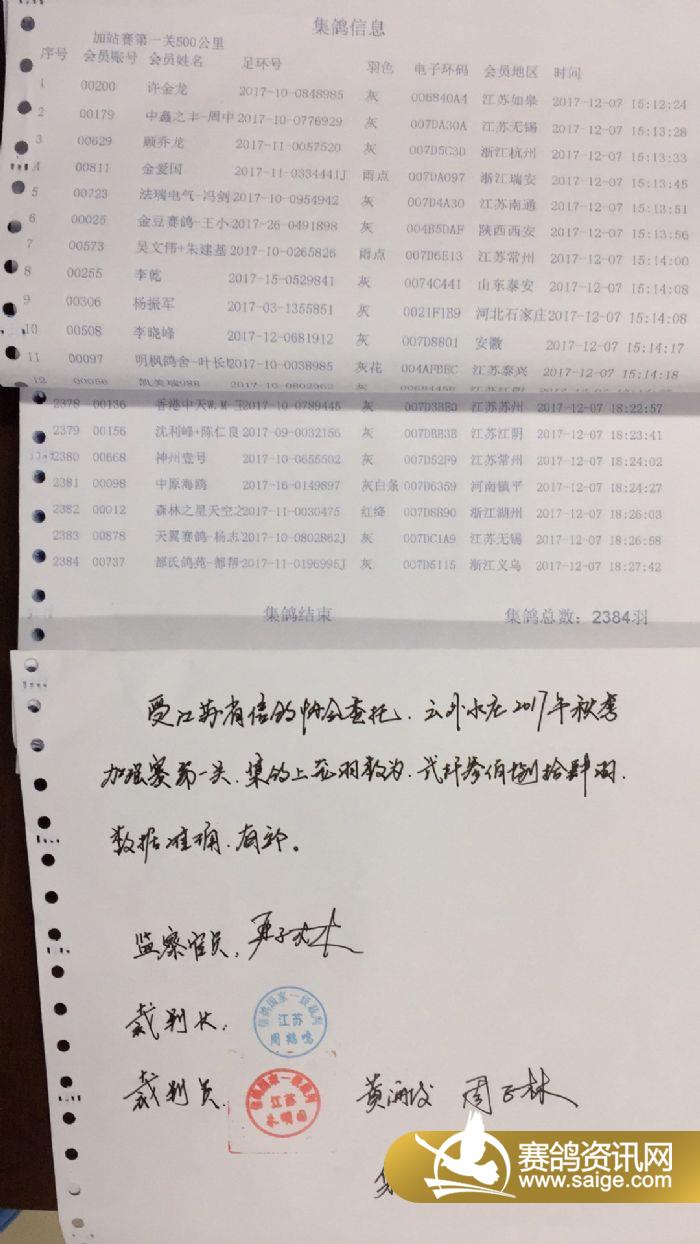 集鸽信息
加站赛第一关500公里
序号 会员账号 会员姓名 足环号 羽色 电子环码 会员地区 时间
1 00200 许金龙 2017-10-0848985 灰 006840A4 江苏如皋 2017-12-07 15:12:24
2 00179 中鑫之丰-周中 2017-10-0776929 灰 007DA30A 江苏无锡 2017-12-07 15:13:28
3 00629 顾乔龙 2017-11-0057520 灰 007D5C3D 浙江杭州 2017-12-07 15:13:33
4 00811 金爱国 2017-11-0334441J 雨点 007DA097 浙江瑞安 2017-12-07 15:13:45
5 00723 法瑞电气-冯剑 2017-10-0954942 灰 007D4A30 江苏南通 2017-12-07 15:13:51
6 00025 金豆赛鸽-王小 2017-26-0491898 灰 004B5DAF 陕西西安 2017-12-07 15:13:56
7 00573 吴文伟+朱建基 2017-10-0265826 雨点 007D6E13 江苏常州 2017-12-07 15:14:00
8 00255 李乾 2017-15-0529841 灰 0074C441 山东泰安 2017-12-07 15:14:08
9 00306 杨振军 2017-03-1355851 灰 0021F1B9 河北石家庄 2017-12-07 15:14:08
10 00508 李晓峰 2017-12-0681912 灰 007D8801 安徽 2017-12-07 15:14:17
11 00097 明枫鸽舍-叶长 2017-10-0038985 灰花 004AFBEC 江苏泰兴 2017-12-07 15:14:18
12 00056
2378 00136 香港中天W.M-王 2017-10-0789445 灰 007D3BE0 江苏苏州 2017-12-07 18:22:57
2379 00156 沈利峰+陈仁良 2017-09-0032156 灰 007DBB3B 江苏江阴 2017-12-07 18:23:41
2380 00668 神州壹号 2017-10-0655502 灰 007D52F9 江苏常州 2017-12-07 18:24:02
2381 00098 中原海鸥 2017-16-0149897 灰白条 007D6359 河南镇平 2017-12-07 18:24:27
2382 00012 森林之星天空之 2017-11-0030475 红绛 007D8B90 浙江湖州 2017-12-07 18:26:03
2383 00878 天翼赛鸽-杨志 2017-10-0802862J 灰 007DC1A9 江苏无锡 2017-12-07 18:26:58
2384 00737 都氏鸽苑-都帮 2017-11-0196995J 灰 007D5115 浙江义乌 2017-12-07 18:27:42
集鸽结束 集鸽总数：2384羽
受江苏省信鸽协会委托、云外水庄2017年秋季
加强赛第一关、集鸽上笼羽数为、贰仟叁佰捌拾肆羽.
数据准确、有效。
监察官员、
裁判长、
信鸽国家一级裁判
江苏
周鹤鸣
裁判员、 周正林
信鸽国家一级裁判
江苏
赛鸽资讯网
www.saige.com